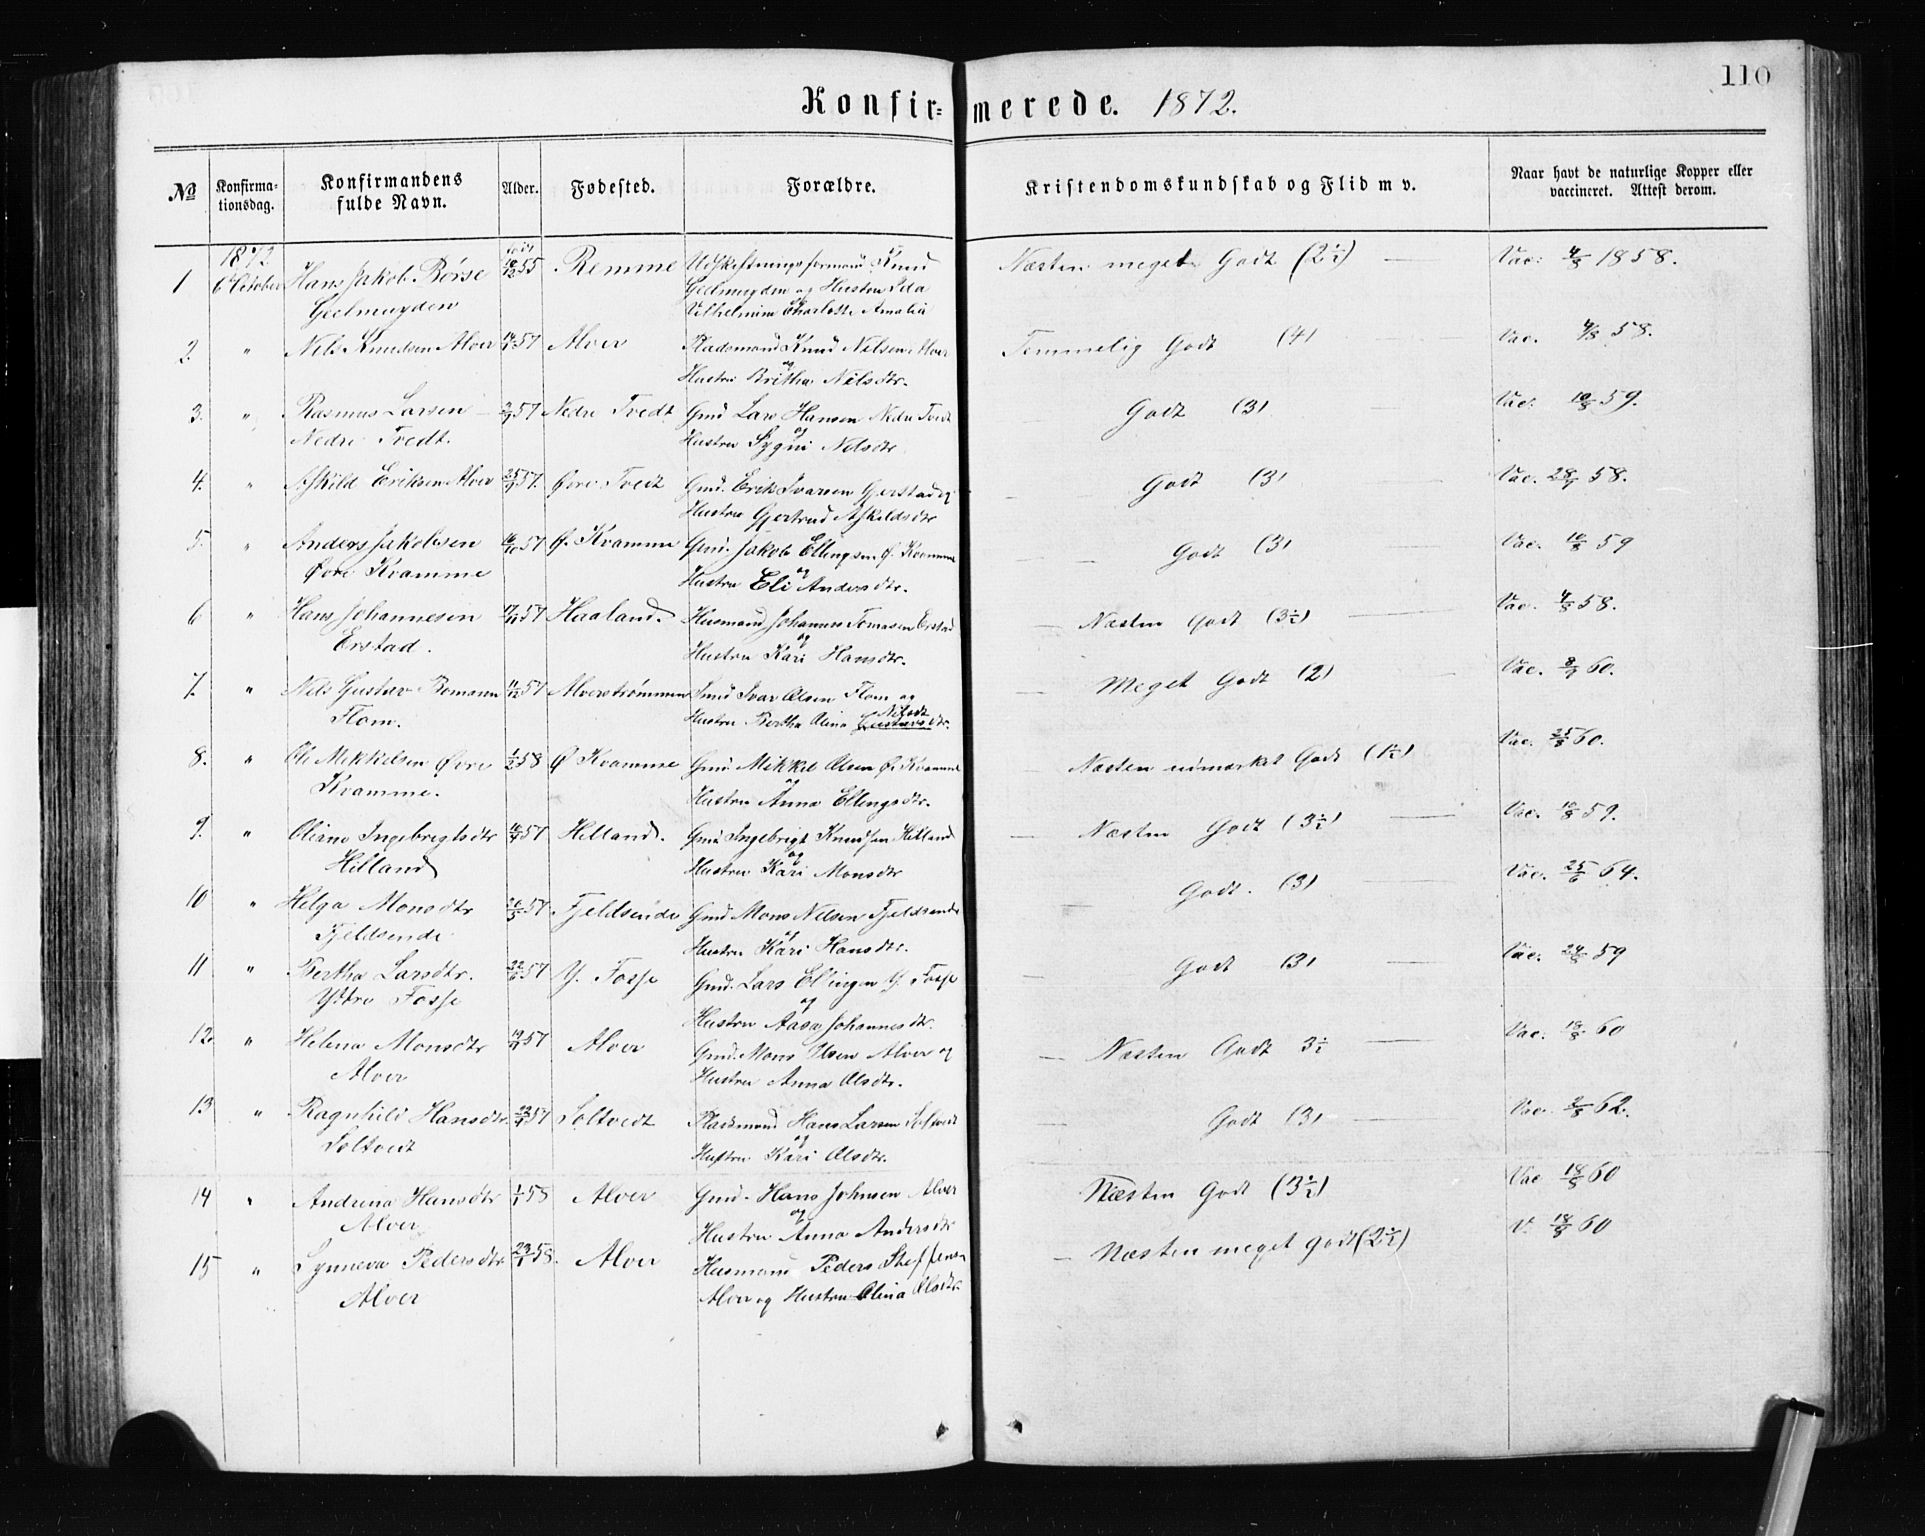 110
Konfirmerede. 1872.
No Konfirmationsdag. Konfirmandens fulde Navn. Alder. Fødested. Forældre. Kristendomskundskab og Flid m v. Naar havt de naturlige Kopper eller vaccineret. Attest derom.
1872
1 6 October Hans Jakob Børse 10/12 55 Remme Udskiftningsformand Knud Næsten meget Godt (2½) Vac: 4/8 1858.
Geelmuyden Geelmuyden og Hustru Ida
Vilhelmine Charlotte Amalia
2. " Nils Knudsen Alver 57 Alver Pladsmand Knud Nilsen Alver Temmelig Godt (4) Vac. 4/8 58.
og
Hustru Britha Nilsdtr.
3. " Rasmus Larsen 57 Nedre Tvedt Gmd Lars Hansen Nedre Tvedt Godt (3) Vac: 10/8 59.
Nedre Tvedt. og
Hustru Sygni Nilsdtr
4. " Askild Eriksen Alver 25/9 57. Øvre Tvedt Gmd. Erik Ivarsen Gjerstad og Godt (3) Vac. 28/9 58.
Hustru Gjertrud Askildsdtr
5. " Anders Jakobsen 16/10 57 Ø. Kvamme Gmd. Jakob Ellingsen Ø. Kvamme Godt (3) Vac. 10/8 59
Øvre Kvamme og
Hustru Eli Andersdtr.
6 " Hans Johannesen 17/11 57 Haaland. Husmand Johannes Tomasen Erstad Næsten Godt (3½) Vac. 4/8 58.
Erstad. og
Hustru Kari Hansdtr.
7. " Nils Gustav Bomann 11/12 57 Alverstrømmen Gmd Ivar Olsen Flom og Meget Godt (2) Vac. 60.
Flom. Nilsdt
Hustru Bertha Olina Gustavsdtr.
8. " Ole Mikkelsen Øvre 1/2 58 Ø Kvamme Gmd. Mikkel Olsen Ø. Kvamme Næsten udmærket Godt (1½) Vac. 25/8 60.
Kvamme. og
Hustru Anna Ellingsdtr.
9. " Oliane Ingebrigtsdtr 57 Hilland. Gmd Ingebrigt Knudsen Hilland Næsten Godt (3½) Vac. 10/8 59.
Hilland og
Hustru Kari Monsdtr
10 " Helga Monsdtr 57 Fjeldsende Gmd Mons Nilsen Fjeldsende Godt. (3) Vac. 25/6 64.
Fjeldsende og
Hustru Kari Hansdtr.
11 " Bertha Larsdtr. 57 Y. Fosse Gmd. Lars Ellingen Y. Fosse Godt (3) Vac. 59
Yttre Fosse og
Hustru Aasa Johannesdtr.
12. " Helena Monsdtr 57 Alver Gmd. Mons Alver og Næsten Godt 3½ Vac. 18/8 60
Alver Hustru Anna Olsdtr.
13 " Ragnhild Hansdtr. 57 Soltvedt Pladsmand Hans Larsen Soltvedt Godt (3) Vac. 2/8 62.
Soltvedt og
Hustru Kari Olsdtr.
14 " Andrina Hansdtr 1/1 58 Alver Gmd. Hans Johnsen Alver Næsten Godt (3½) Vac 18/8 60
Alver og
Hustru Anna Andersdtr
15 " Synneva Pedersdtr 58. Alver Husmand Peders Steffensen Næsten meget godt (2½) V. 18/8 60
Alver Alver og Hustru Olina Olsdtr.